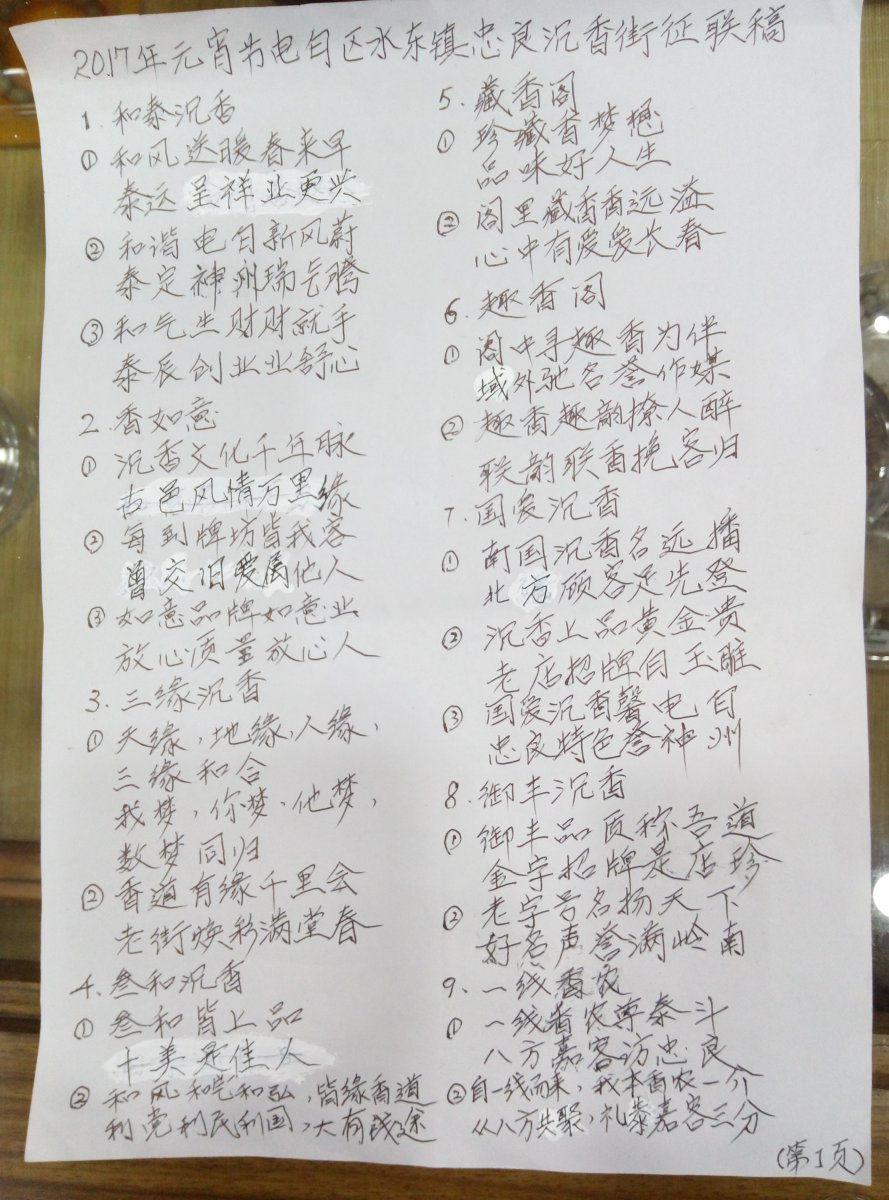 2017年元宵节电白区水东镇忠良沉香街征联稿
1. 和泰沉香
① 和风送暖春来早
泰运呈祥业更兴
② 和谐电白新风蔚
泰定神州瑞气腾
③ 和气生财财就手
泰辰创业业舒心
2. 香如意
① 沉香文化千年脉
古邑风情万里缘
② 每到牌坊皆我客
曾交旧爱属他人
③ 如意品牌如意业
放心质量放心人
3. 三缘沉香
① 天缘,地缘,人缘,
三缘和合
我梦,你梦,他梦,
数梦同归
② 香道有缘千里会
老街焕彩满堂春
4. 叁和沉香
① 叁和皆上品
十美是佳人
② 和风和气和弘,皆缘香道
利党利民利国,大有钱途
5. 藏香阁
① 珍藏香梦想
品味好人生
② 阁里藏香香远溢
心中有爱爱长春
6. 趣香阁
① 阁中寻趣香为伴
域外驰名誉作媒
② 趣香趣韵撩人醉
联韵联香挽客归
7. 国爱沉香
① 南国沉香名远播
北方顾客足先登
② 沉香上品黄金贵
老店招牌白玉雕
③ 国爱沉香馨电白
忠良特色誉神州
8. 御丰沉香
① 御丰品质称吾道
金字招牌是店珍
② 老字号名扬天下
好名声誉满岭南
9. 一线香农
① 一线香农尊泰斗
八方嘉客访忠良
② 自一线而来,我本香农一介
从八方共聚,礼泰嘉客三分
(第1页)